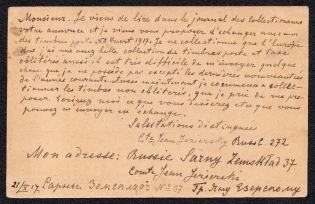 Monsieur. Je viens de lire dans le journal des collectionneurs
votre annonce et je viens vous proposer d'échanger avec moi
des timbres poste. Je collectionne que l'Europe
j'ai une belle collection de timbres poste et taxe
oblitérés aussi il est très difficile de m'envoyer quelque
chose que je ne possède pas excepté les dernières nouveautés
de l'année courante. maintenant je commence à collec-
tionner les timbres non oblitérés, que je prie de me pro-
poser. Ecrivez moi ce que vous désirerez et ce que vous
pouvez m'envoyer en échange.
Salutations distinguées
Cte Jean Jezierski Russ. 272
Mon adresse: Russie Sarny Zemsklad 37
Comte Jean Jezierski
21/ 17. Сарны Земсклад № 37 Гр. Яну Езерскому